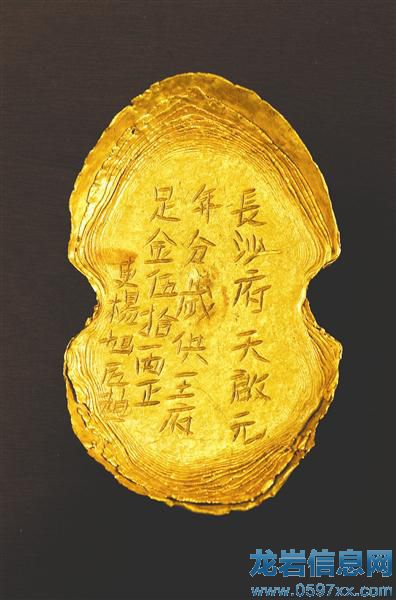 長沙府天啟元
年分歲供王府
足金伍拾兩正
吏楊旭匠趙
龙岩信息网
www.0597xx.com